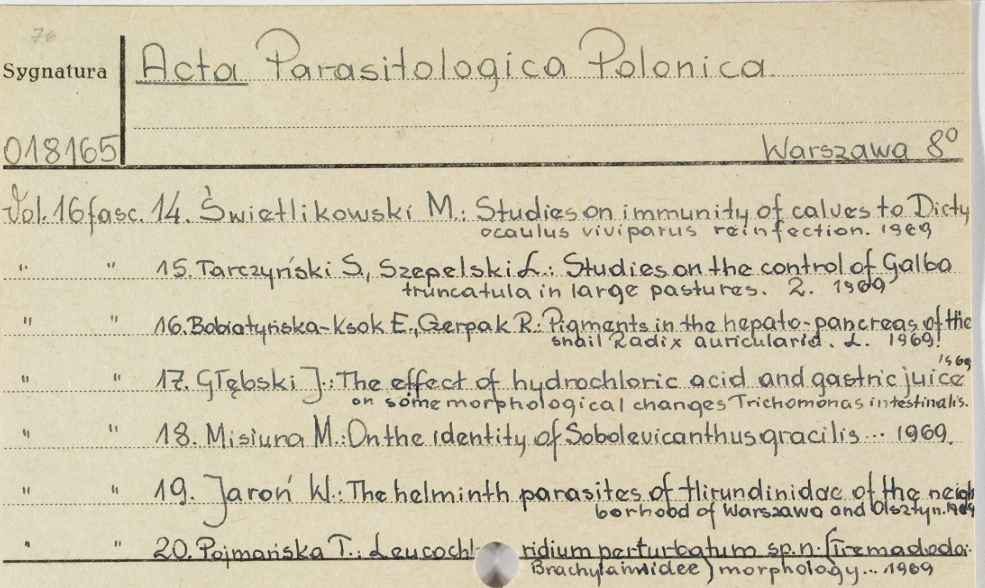 76
Sygnatura
Acta Parasitologica Polonica
018165
Warszawa 8°
Vol. 16 fasc. 14. Świetlikowski M.: Studies on immunity of calves to Dicty
ocaulus viviparus reinfection. 1969
" " 15. Tarczyński S., Szepelski L.: Studies on the control of Galba
truncatula in large pastures. 2. 1969
" " 16. Bobiatyńska-Ksok E., Gerpak R.: Pigments in the hepato-pancreas of the
snail Radix auricularia. L. 1969.
" " 17. Głębski J.: The effect of hydrochloric acid and gastric juice 1969
on some morphological changes Trichomonas intestinalis.
" " 18. Misiura M.: On the identity of Sobolevicanthus gracilis ... 1969.
" " 19. Jaroń W.: The helminth parasites of Hirundinidae of the neigh
borhood of Warszawa and Olsztyn. 1969
" " 20. Pojmańska T.: Leucochl ridium perturbatum sp.n. (Trematoda:
Brachylaimidee) morphology... 1969